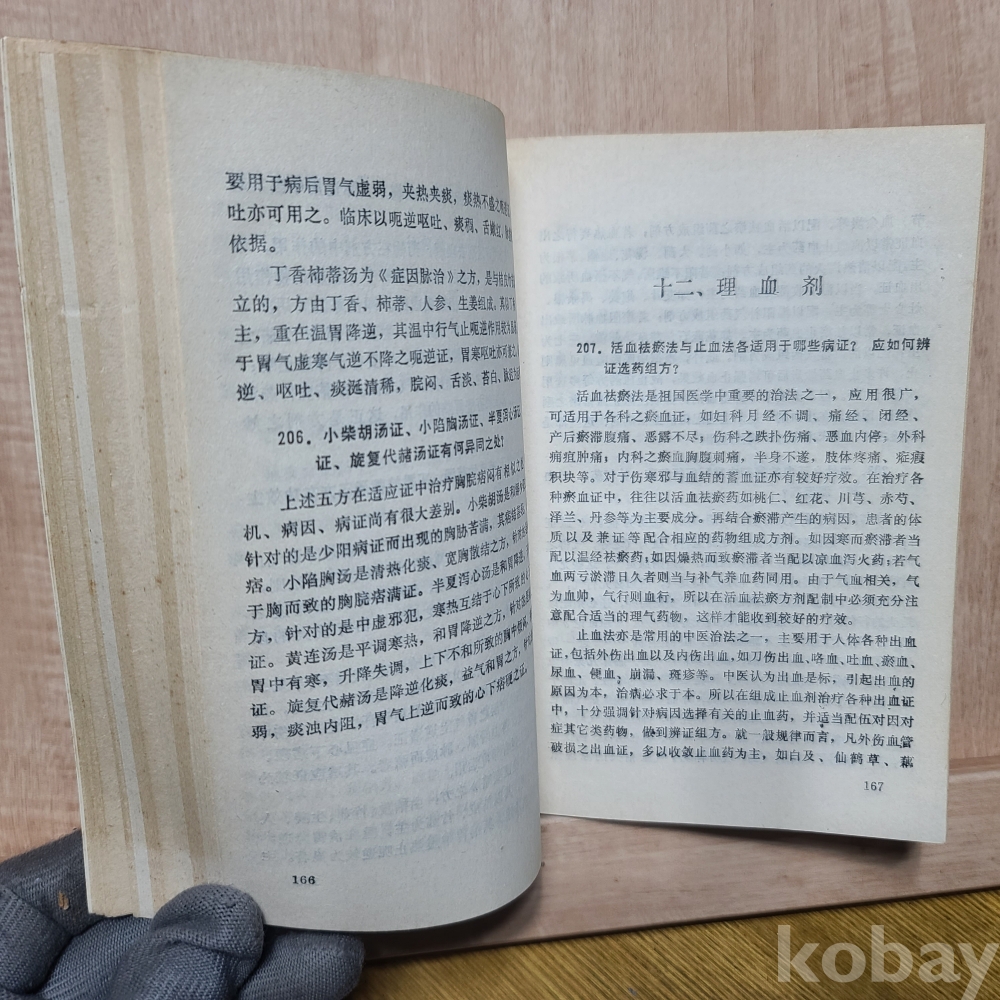 要用于病后胃气虚弱，夹热夹痰，痰热不盛之呃逆
吐亦可用之。临床以呃逆呕吐、痰稠、舌嫩红、
依据。
丁香柿蒂汤为《症因脉治》之方，是与
立的，方由丁香、柿蒂、人参、生姜组成。
主，重在温胃降逆，其温中行气止呃逆作用较为
于胃气虚寒气逆不降之呃逆证，胃寒呕吐亦可
逆、呕吐、痰涎清稀，脘闷、舌淡、苔白、脉迟为
206．小柴胡汤证、小陷胸汤证、半夏泻心汤证、
证、旋复代赭汤证有何异同之处？
上述五方在适应证中治疗胸脘痞闷有相似之
机、病因、病证尚有很大差别。小柴胡汤是和解
针对的是少阳病证而出现的胸胁苦满，其
痞。小陷胸汤是清热化痰、宽胸散结之方，针对
于胸而致的胸脘痞满证。半夏泻心汤是和胃降逆
方，针对的是中虚邪犯，寒热互结于心下所致的心
证。黄连汤是平调寒热，和胃降逆之方，针对
胃中有寒，升降失调，上下不和所致的胸中烦
证。旋复代赭汤是降逆化痰，益气和胃之方，针
弱，痰浊内阻，胃气上逆而致的心下痞硬之证。
166
十二、理血剂
207．活血祛瘀法与止血法各适用于哪些病证？ 应如何辨
证选药组方？
活血祛瘀法是祖国医学中重要的治法之一，应用很广，
可适用于各科之瘀血证，如妇科月经不调、痛经、闭经、
产后瘀滞腹痛、恶露不尽；伤科之跌扑伤痛、恶血内停；外科
痈疽肿痛；内科之瘀血胸腹刺痛，半身不遂，肢体疼痛、症瘕
积块等。对于伤寒邪与血结的蓄血证亦有较好疗效。在治疗各
种瘀血证中，往往以活血祛瘀药如桃仁、红花、川芎、赤芍、
泽兰、丹参等为主要成分。再结合瘀滞产生的病因，患者的体
质以及兼证等配合相应的药物组成方剂。如因寒而瘀滞者当
配以温经祛瘀药；如因燥热而致瘀滞者当配以凉血泻火药；若气
血两亏瘀滞日久者则当与补气养血药同用。由于气血相关，气
为血帅，气行则血行，所以在活血祛瘀方剂配制中必须充分注
意配合适当的理气药物，这样才能收到较好的疗效。
止血法亦是常用的中医治法之一，主要用于人体各种出血
证，包括外伤出血以及内伤出血，如刀伤出血、咯血、吐血、瘀血、
尿血、便血、崩漏、斑疹等。中医认为出血是标，引起出血的
原因为本，治病必求于本。所以在组成止血剂治疗各种出血证
中，十分强调针对病因选择有关的止血药，并适当配伍对因对
症其它类药物，做到辨证组方。就一般规律而言，凡外伤血管
破损之出血证，多以收敛止血药为主，如白及、仙鹤草、藕
167
kobay